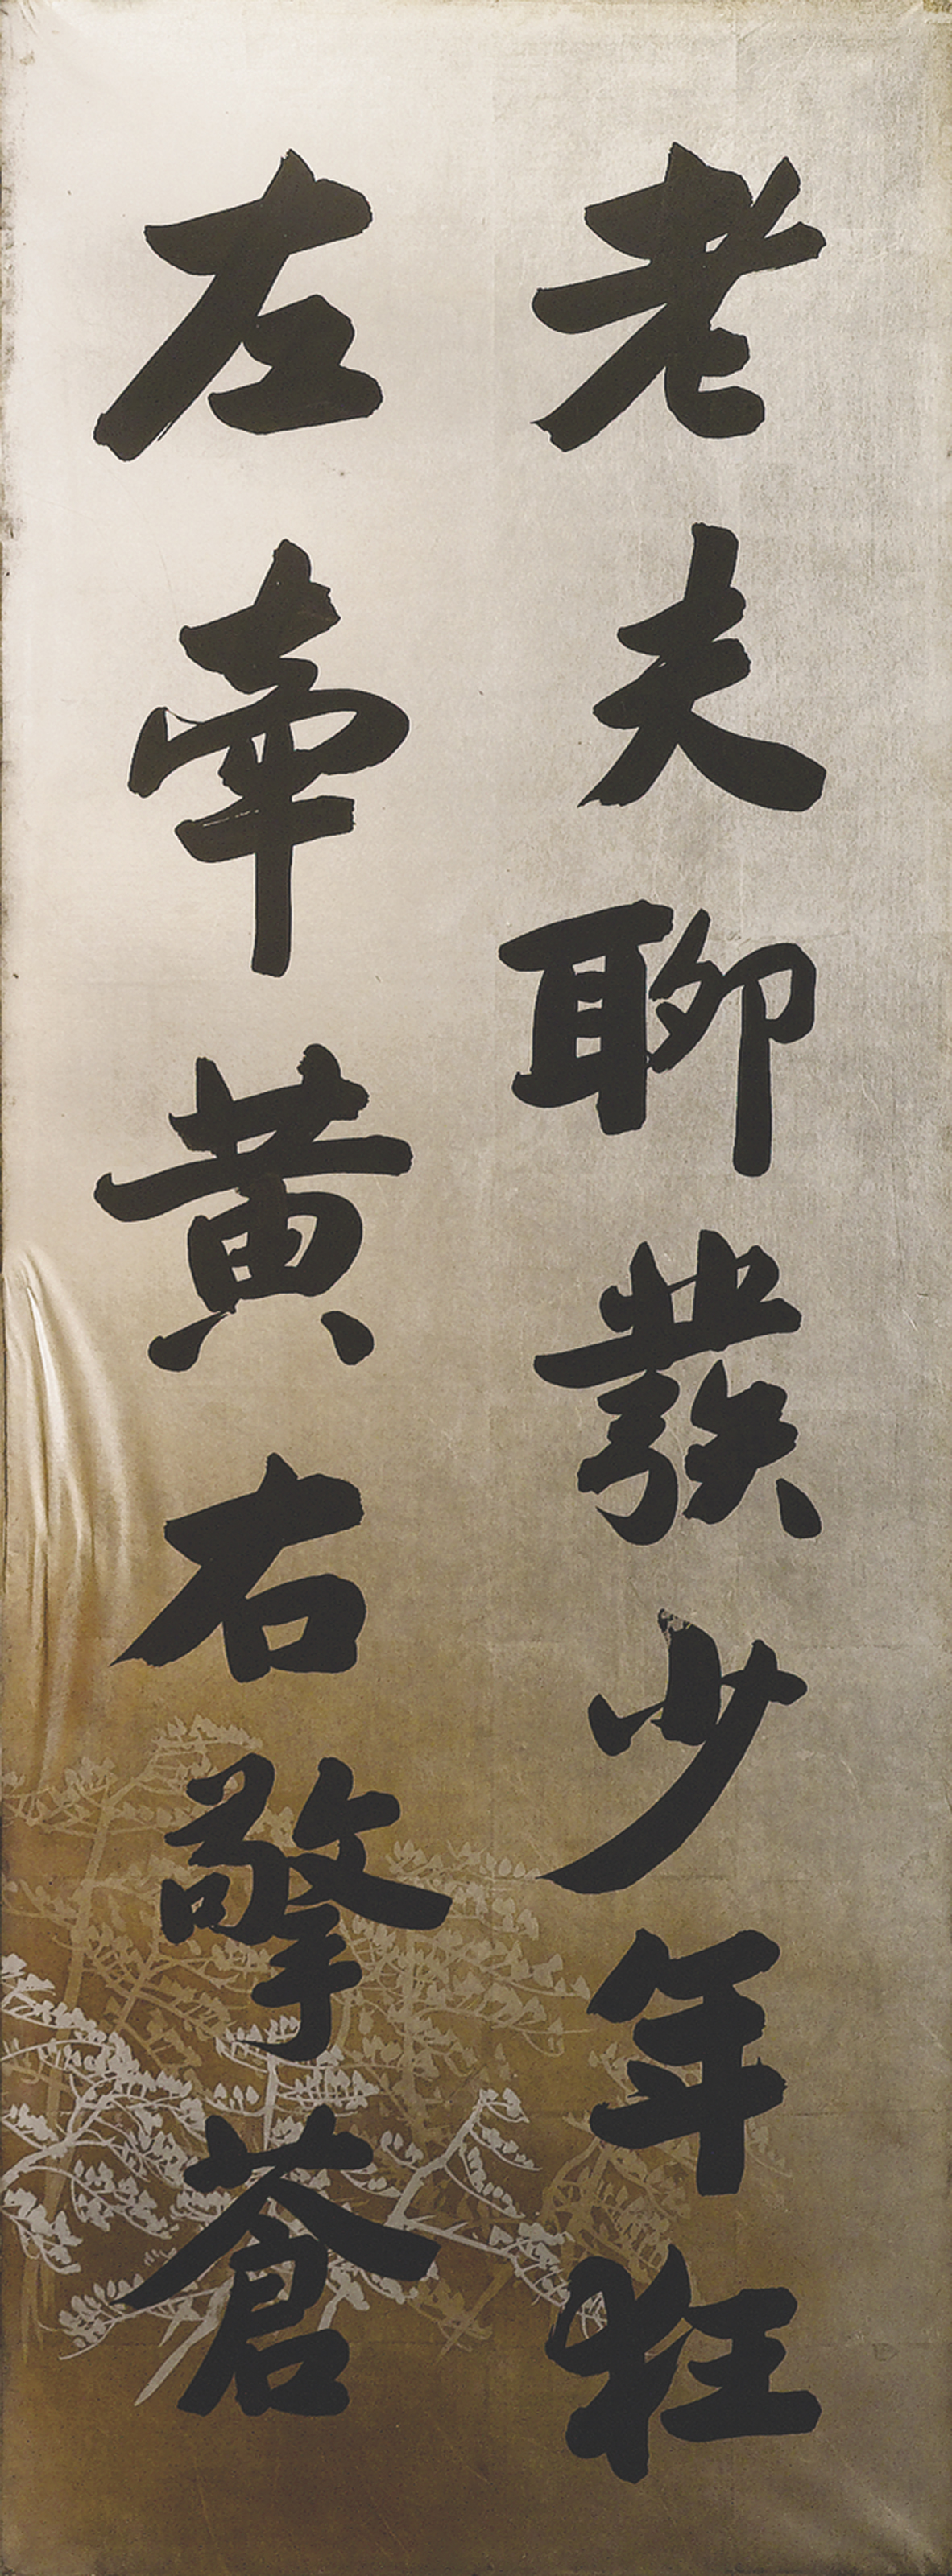 老夫聊發少年狂
左牽黃右擎蒼